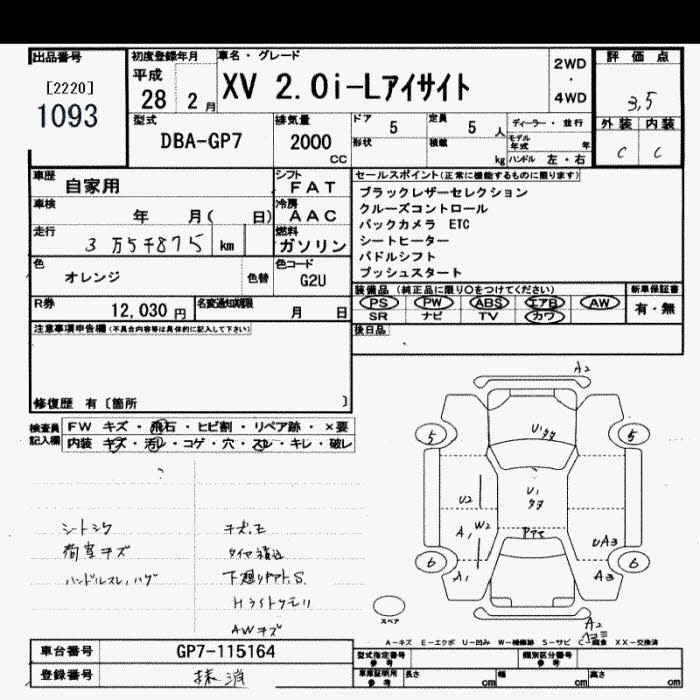 出品番号
[2220]
1093
初度登録年月
平成
28 2月
車名・グレード
XV 2.0i-Lアイサイト
2WD
・
4WD
評価点
3,5
外装 内装
C C
型式
DBA-GP7
排気量
2000
CC
ドア 5
定員 5 人
形状
積載 kg
ディーラー・並行
モデル年式 年
ハンドル 左・右
車歴
自家用
シフト
FAT
車検
年 月( 日)
冷房
AAC
走行
3万5千875 km
燃料
ガソリン
色
オレンジ
色替
色コード
G2U
R券
12,030 円
名変通知期限
月 日
セールスポイント(正常に機能するものに限ります)
ブラックレザーセレクション
クルーズコントロール
バックカメラ ETC
シートヒーター
パドルシフト
プッシュスタート
装備品(純正品に限り○をつけてください)
PS PW ABS エアB AW
SR ナビ TV カワ
新車保証書
有・無
後日品
注意事項申告欄(不具合内容等は具体的に記入して下さい)
修復歴 有〔箇所 〕
検査員
記入欄
FW キズ・飛石・ヒビ割・リペア跡・×要
内装 キズ・汚レ・コゲ・穴・スレ・キレ・破レ
シートシワ
荷室キズ
ハンドルスレ,ハゲ
キズ,モ
タイヤ積込
下廻りサビ,S.
Hライトクモリ
AWキズ
A2
U,タタ
5
5
U2
U,
タタ
A,
W2
UA3
6
6
A1
A3
A2
スペア
A-キズ E-エクボ U-凹み W-補修跡 S-サビ C-腐食 XX-交換済
車台番号
GP7-115164
登録番号
抹消
型式指定番号
参考
類別区分番号
参考
車庫証明用
参考
長さ cm
幅 cm
高さ cm